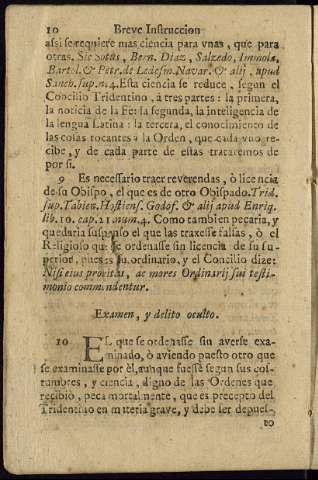 10 Breve Instruccion
assi se requiere mas ciencia para vnas, que para
otras, Sic Sotus, Bern. Diaz, Salzedo, Immola,
Bartol. & Petr. de Ledesm. Navar. & alij, apud
Sanch. sup. n. 4. Esta ciencia se reduce, segun el
Concilio Tridentino, à tres partes: la primera,
la noticia de la Fè: la segunda, la inteligencia de
la lengua Latina: la tercera, el conocimiento de
las cosas tocantes à la Orden, que cada vno re-
cibe, y de cada parte de estas trataremos de
por si.
9 Es necessario traer reverendas, ò licencia
de su Obispo, el que es de otro Obispado. Trid.
sup. Tabien. Hostiens. Godof. & alij apud Enriq.
lib. 10. cap. 21 num. 4. Como tambien pecaria, y
quedaria suspenso el que las traxesse falsas, ò el
Religioso que se ordenasse sin licencia de su su-
perior, pues es su ordinario, y el Concilio dize:
Nisi eius provitas, ac mores Ordinarij sui testi-
monio commendentur.
Examen, y delito oculto.
10 EL que se ordenasse sin averse exa-
minado, ò aviendo puesto otro que
se examinasse por èl, aunque fuesse segun sus cos-
tumbres, y ciencia, digno de las Ordenes que
recibiò, peca mortalmente, que es precepto del
Tridentino en materia grave, y debe ser depues-
to